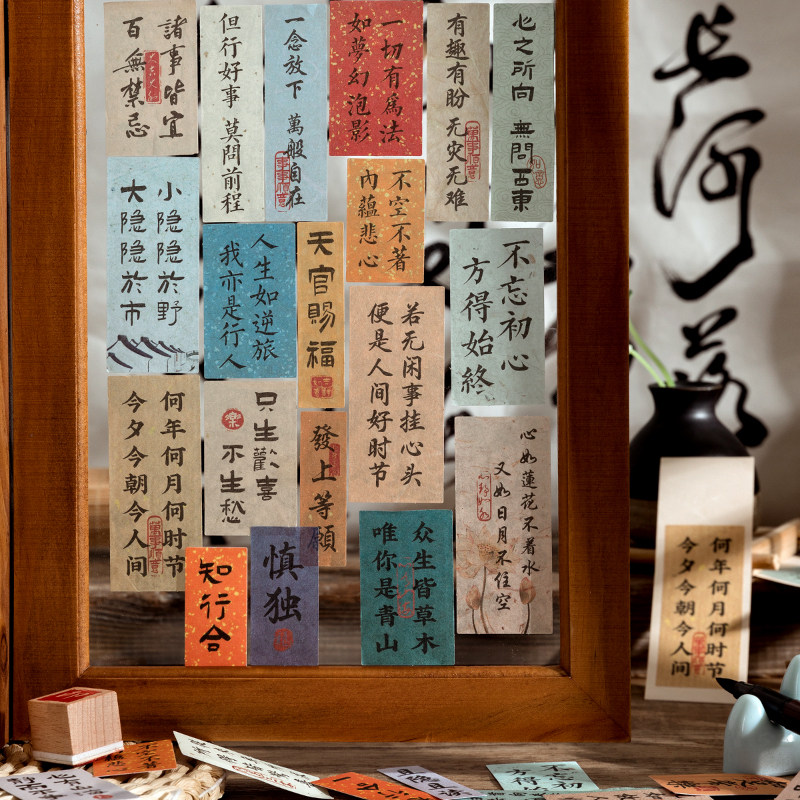 諸事皆宜
百無禁忌
但行好事 莫問前程
一念放下 萬般自在
一切有為法
如夢幻泡影
有趣有盼 无灾无难
心之所向 無問西東
小隐隐於野
大隐隐於市
人生如逆旅
我亦是行人
天官賜福
不空不著
內蘊悲心
不忘初心
方得始終
若无闲事挂心头
便是人间好时节
何年何月何时节
今夕今朝今人间
只生歡喜
不生愁
發上等願
心如蓮花不着水
又如日月不住空
知行合
慎独
众生皆草木
唯你是青山
長河落
何年何月何时节
今夕今朝今人间
不忘初心
方得始終